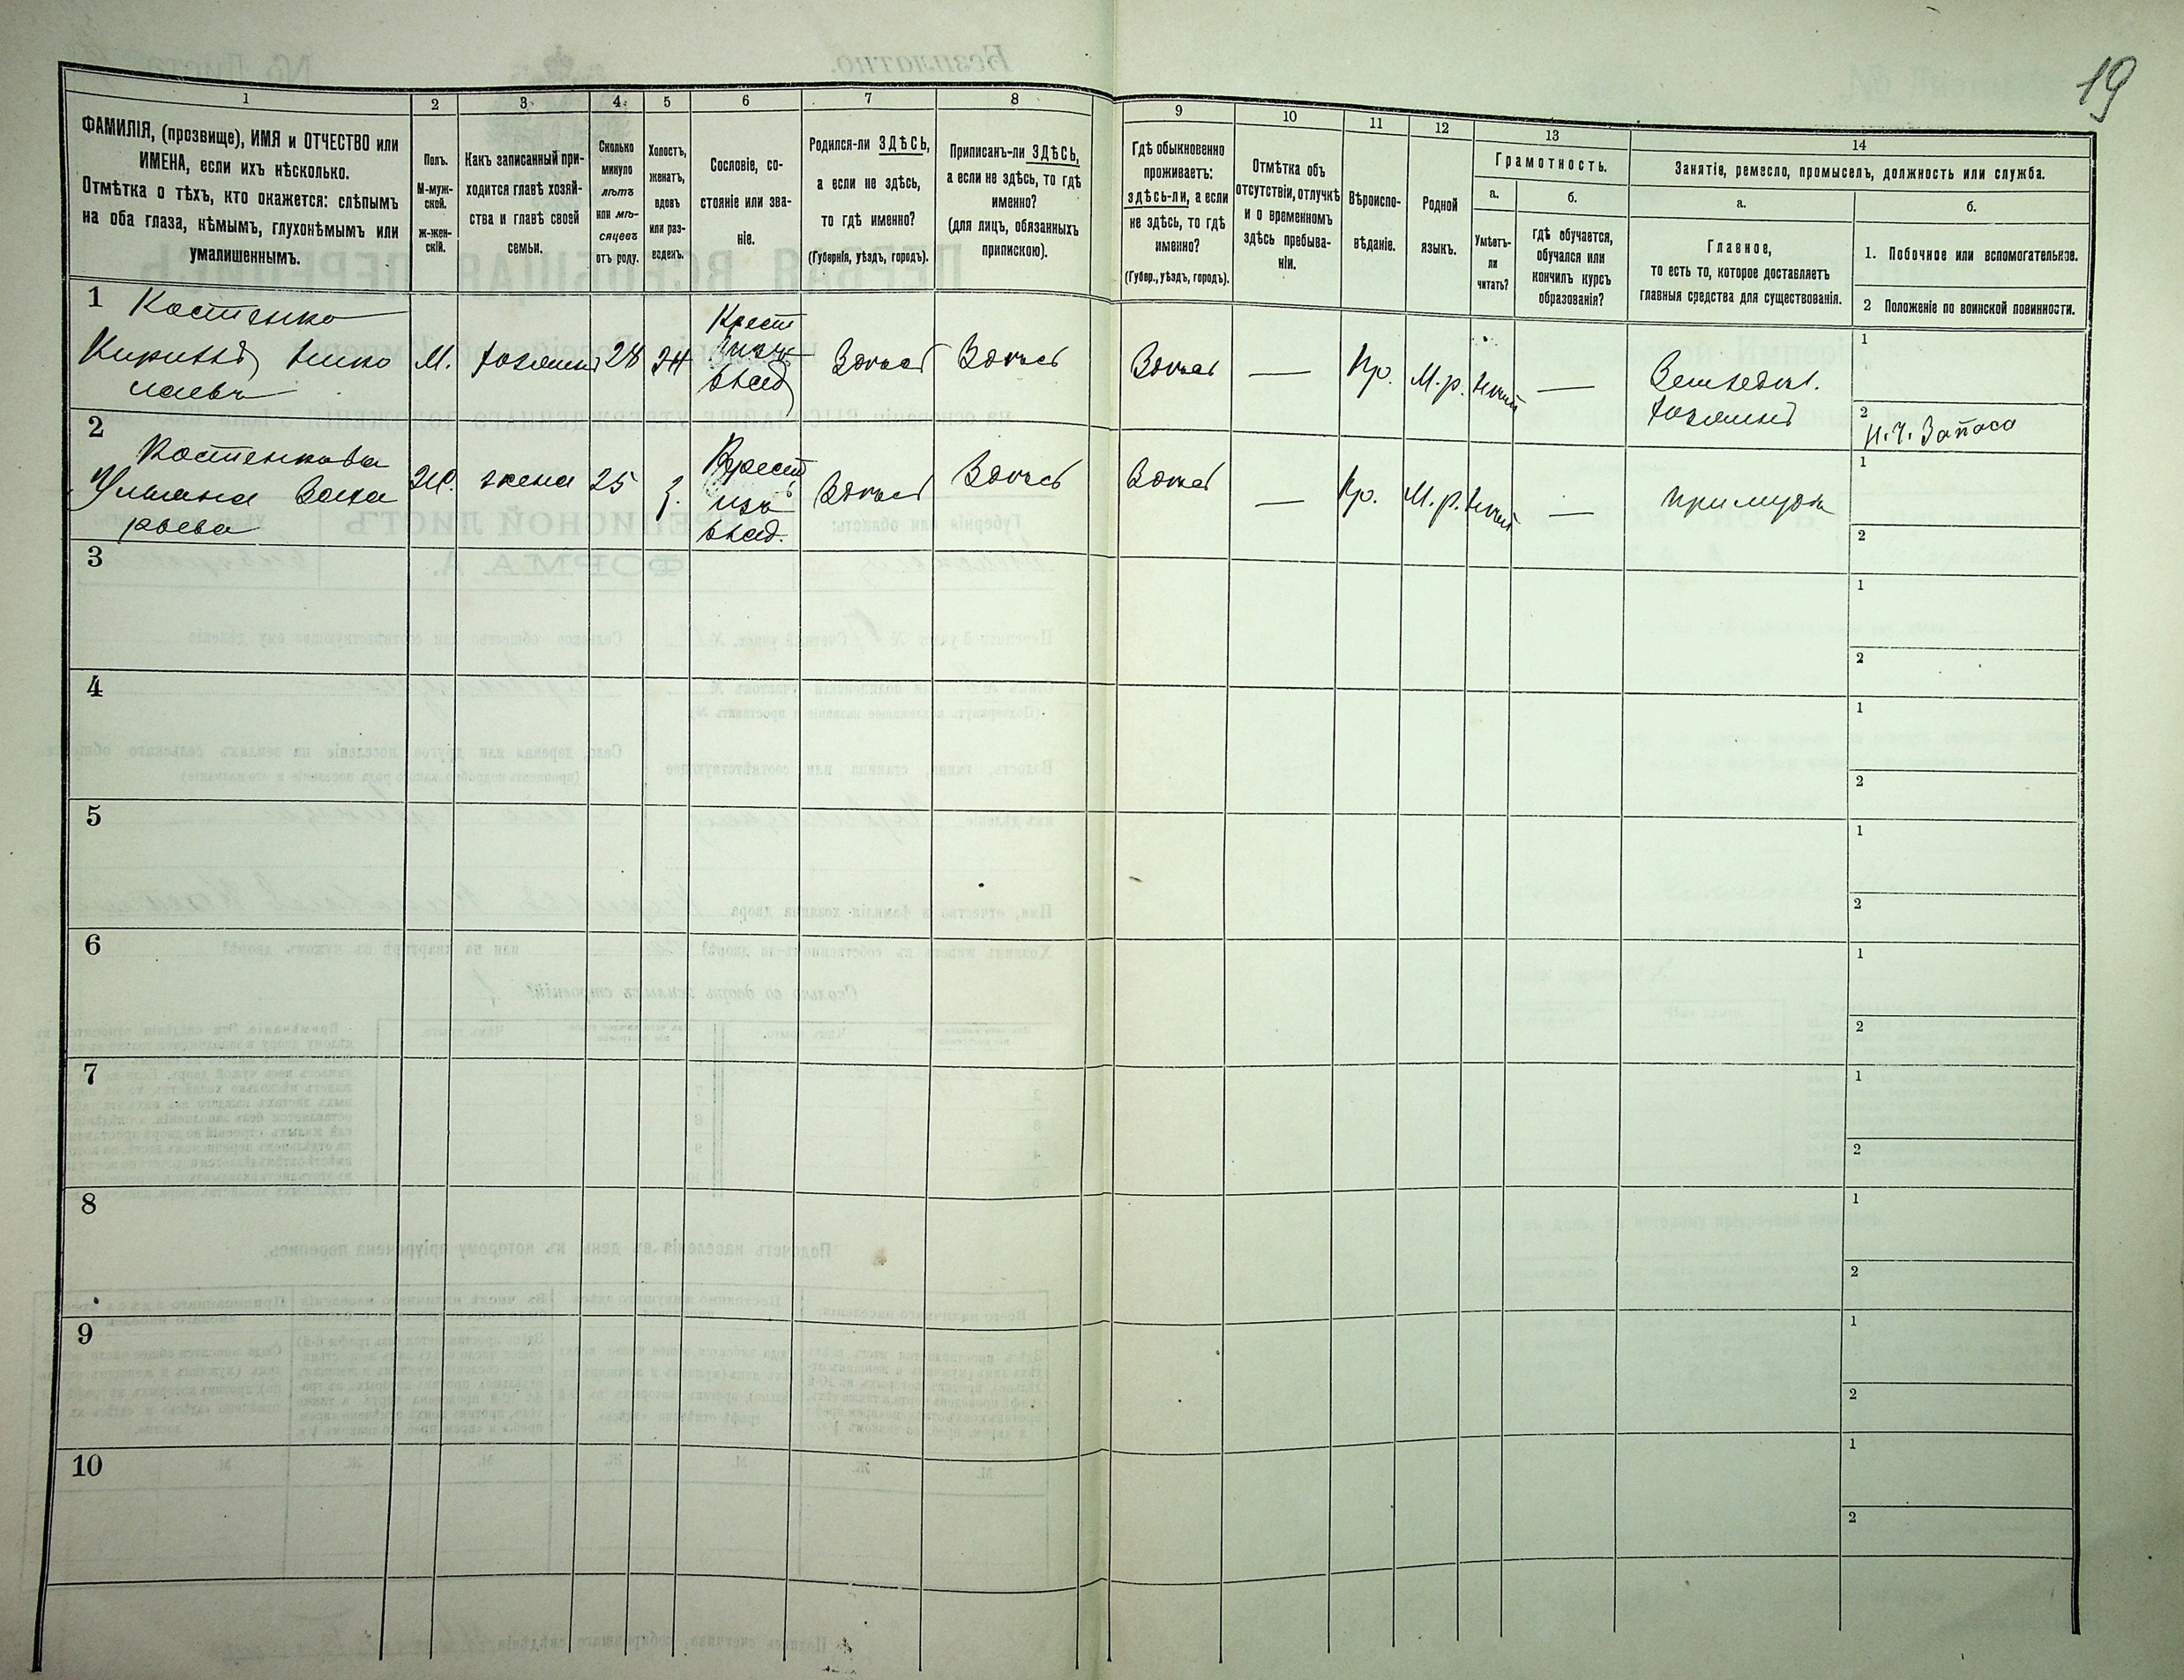 19
1
2
3
4
5
6
7
8
9
10
11
12
13
14
ФАМИЛІЯ, (прозвище), ИМЯ и ОТЧЕСТВО или
ИМЕНА, если ихъ нѣсколько.
Отмѣтка о тѣхъ, кто окажется: слѣпымъ
на оба глаза, нѣмымъ, глухонѣмымъ или
умалишеннымъ.
Полъ.
М-муж-
ской.
ж-жен-
скій.
Какъ записанный при-
ходится главѣ хозяй-
ства и главѣ своей
семьи.
Сколько
минуло
лѣтъ
или мѣ-
сяцевъ
отъ роду.
Холостъ,
женатъ,
вдовъ
или раз-
веденъ.
Сословіе, со-
стояніе или зва-
ніе.
Родился-ли ЗДѢСЬ,
а если не здѣсь,
то гдѣ именно?
(Губернія, уѣздъ, городъ).
Приписанъ-ли ЗДѢСЬ,
а если не здѣсь, то гдѣ
именно?
(для лицъ, обязанныхъ
припискою).
Гдѣ обыкновенно
проживаетъ:
здѣсь-ли, а если
не здѣсь, то гдѣ
именно?
(Губер., уѣздъ, городъ).
Отмѣтка объ
отсутствіи, отлучкѣ
и о временномъ
здѣсь пребыва-
ніи.
Вѣроиспо-
вѣданіе.
Родной
языкъ.
Грамотность.
а.
Умѣетъ-
ли
читать?
б.
гдѣ обучается,
обучался или
кончилъ курсъ
образованія?
Занятіе, ремесло, промыселъ, должность или служба.
а.
Главное,
то есть то, которое доставляетъ
главныя средства для существованія.
б.
1. Побочное или вспомогательное.
2 Положеніе по воинской повинности.
1
Костенко
Кириллъ Нико
лаевъ
М.
хозяинъ
28
Ж
Крест
изъ
влад
Здѣсь
Здѣсь
Здѣсь
—
Пр.
М.р.
—
Земледѣл.
хозяинъ
1
2
Н.Ч. Запаса
2
Костенкова
Ульяна Заха
рьева
Ж.
жена
25
З.
Крест
изъ
влад.
Здѣсь
Здѣсь
Здѣсь
—
Пр.
М.р.
—
при мужѣ
1
2
3
1
2
4
1
2
5
1
2
6
1
2
7
1
2
8
1
2
9
1
2
10
1
2